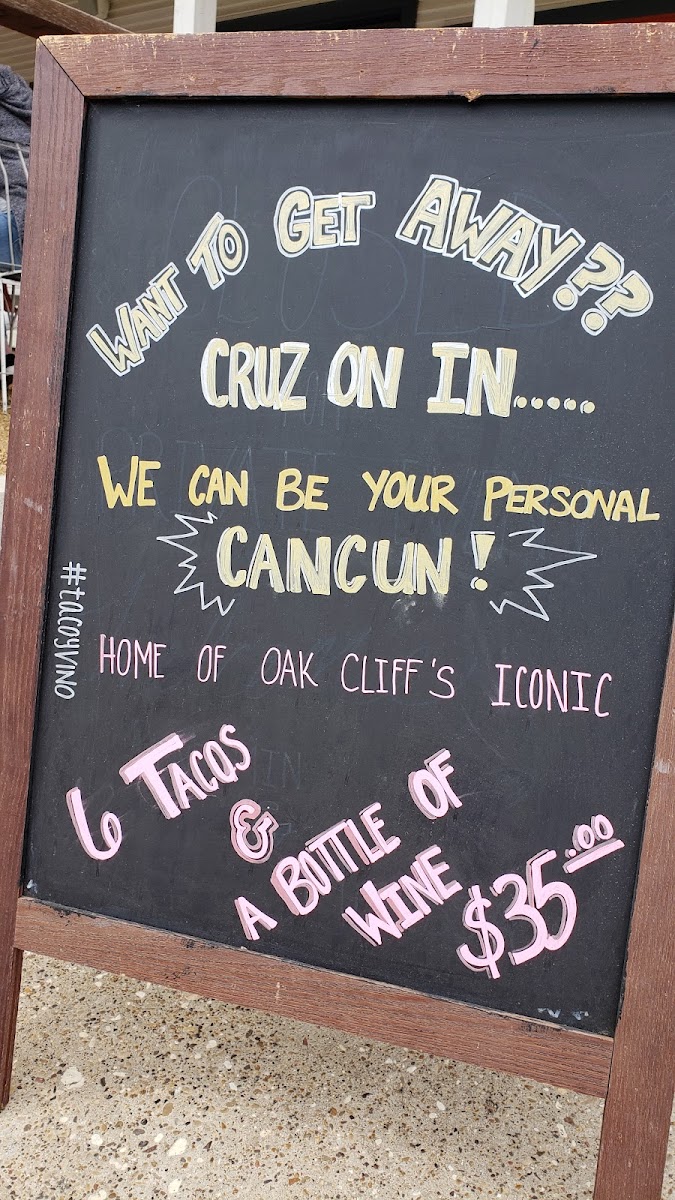 WANT TO GET AWAY??
CRUZ ON IN.....
WE CAN BE YOUR PERSONAL
CANCUN!
#tacoyVINO
HOME OF OAK CLIFF'S ICONIC
6 TACOS
&
A BOTTLE OF
WINE $35.00